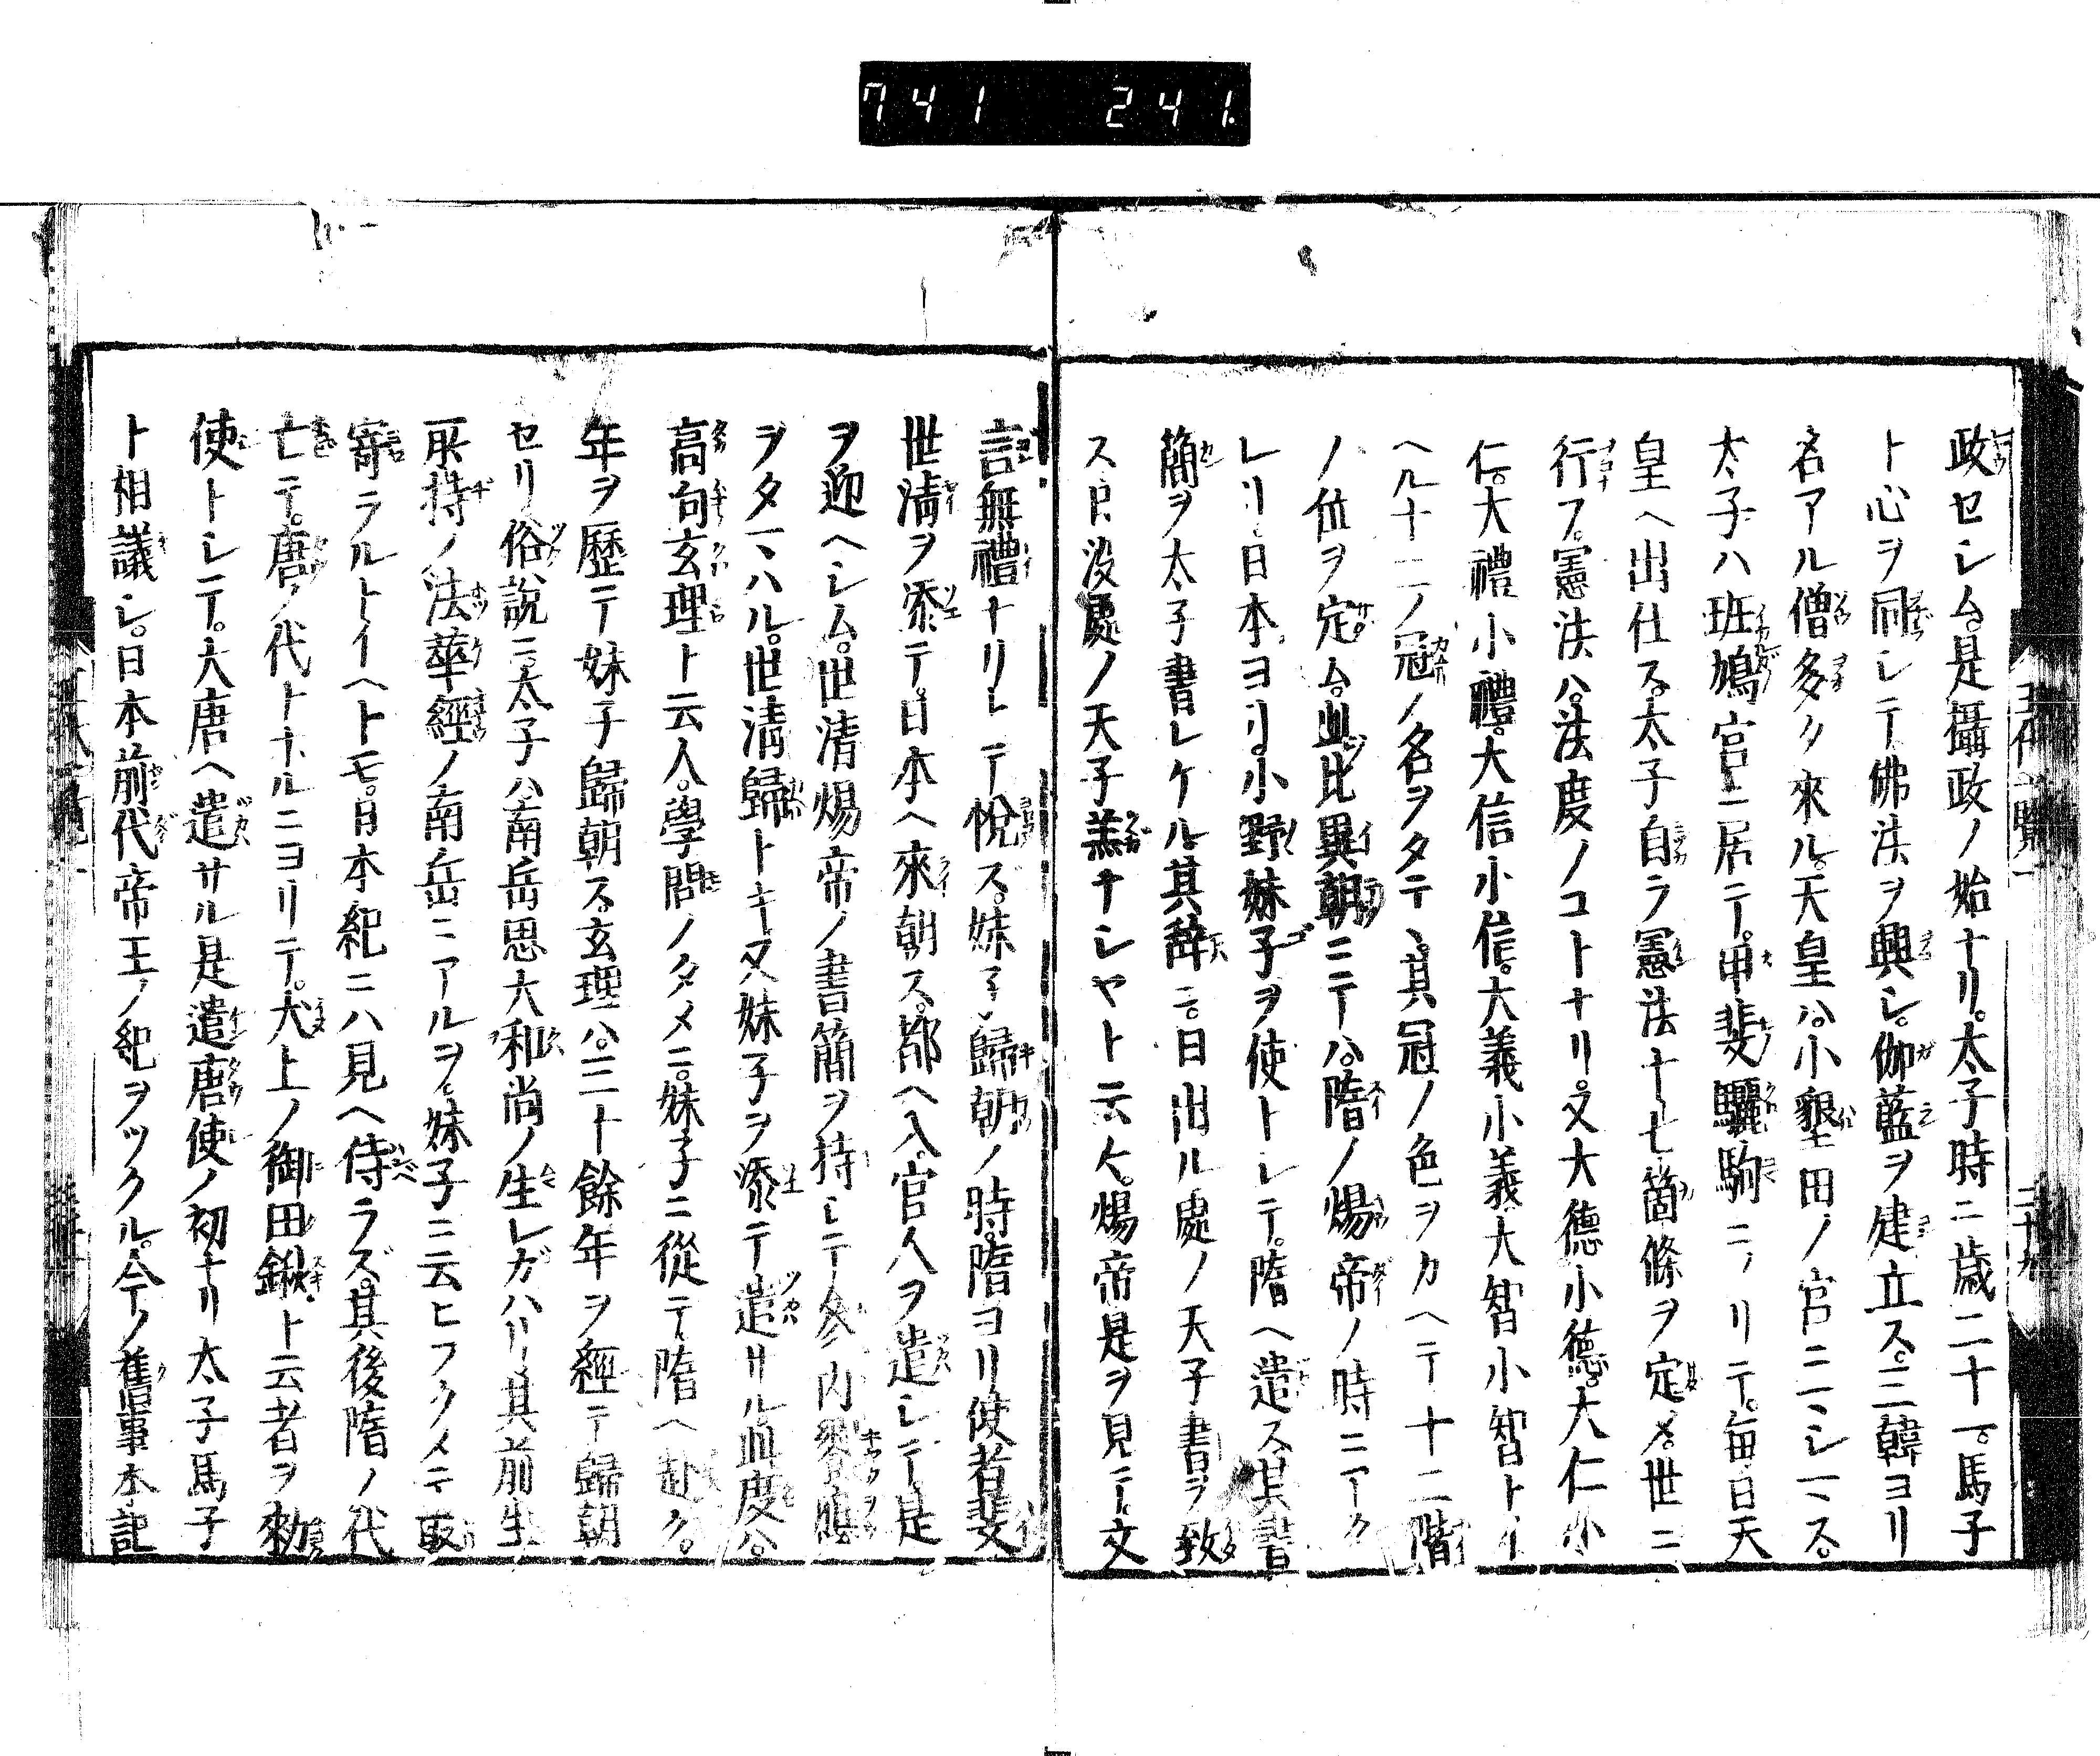 741 241.
政セシム。是攝政ノ始ナリ。太子時ニ歳二十一。馬子
ト心ヲ同シテ佛法ヲ興シ。伽藍ヲ建立ス。三韓ヨリ
名アル僧多ク來ル。天皇ハ。小墾田ノ宮ニマシマス。
太子ハ斑鳩宮ニ居テ。甲斐驪駒ニノリテ。毎日天
皇ヘ出仕ス。太子自ラ憲法十七箇條ヲ定メ。世ニ
行フ。憲法ハ。法度ノコトナリ。又大德小德。大仁小
仁。大禮小禮。大信小信。大義小義。大智小智トイ
ヘル十二ノ冠ノ名ヲタテヽ。其冠ノ色ヲカヘテ十二階
ノ位ヲ定ム。此比異朝ニテハ。隋ノ煬帝ノ時ニアタ
レリ。日本ヨリ。小野妹子ヲ使トレテ。隋ヘ遣ス。其書
簡ヲ太子書レケル。其辭ニ。日出ル處ノ天子書ヲ致
ス日没處ノ天子恙ナシヤト云々。煬帝是ヲ見テ。文
言無禮ナリトテ悅ズ。妹子歸朝ノ時。隋ヨリ使者斐
世清ヲ添テ。日本ヘ來朝ス。都ヘ入。官人ヲ遣レテ是
ヲ迎ヘシム。世清煬帝ノ書簡ヲ持シテ參内饗應
ヲタマハル。世清歸トキ又妹子ヲ添テ遣サル此度ハ。
高向玄理ト云人。學問ノタメニ。妹子ニ從テ隋ヘ赴ク。
年ヲ歷テ妹子歸朝ス。玄理ハ。三十餘年ヲ經テ歸朝
セリ俗說ニ。太子ハ南岳思大和尚ノ生レガハリ。其前生
所持ノ法華經ノ南岳ニアルヲ。妹子ニ云ヒフクメテ取
寄ラルトイヘトモ。日本紀ニハ見ヘ侍ラズ。其後隋ノ代
亡テ。唐ノ代トナルニヨリテ。犬上ノ御田鍬ト云者ヲ勅
使トレテ。大唐ヘ遣サル是遣唐使ノ初ナリ太子馬子
ト相議シ。日本前代帝王ノ紀ヲツクル。今ノ舊事本記